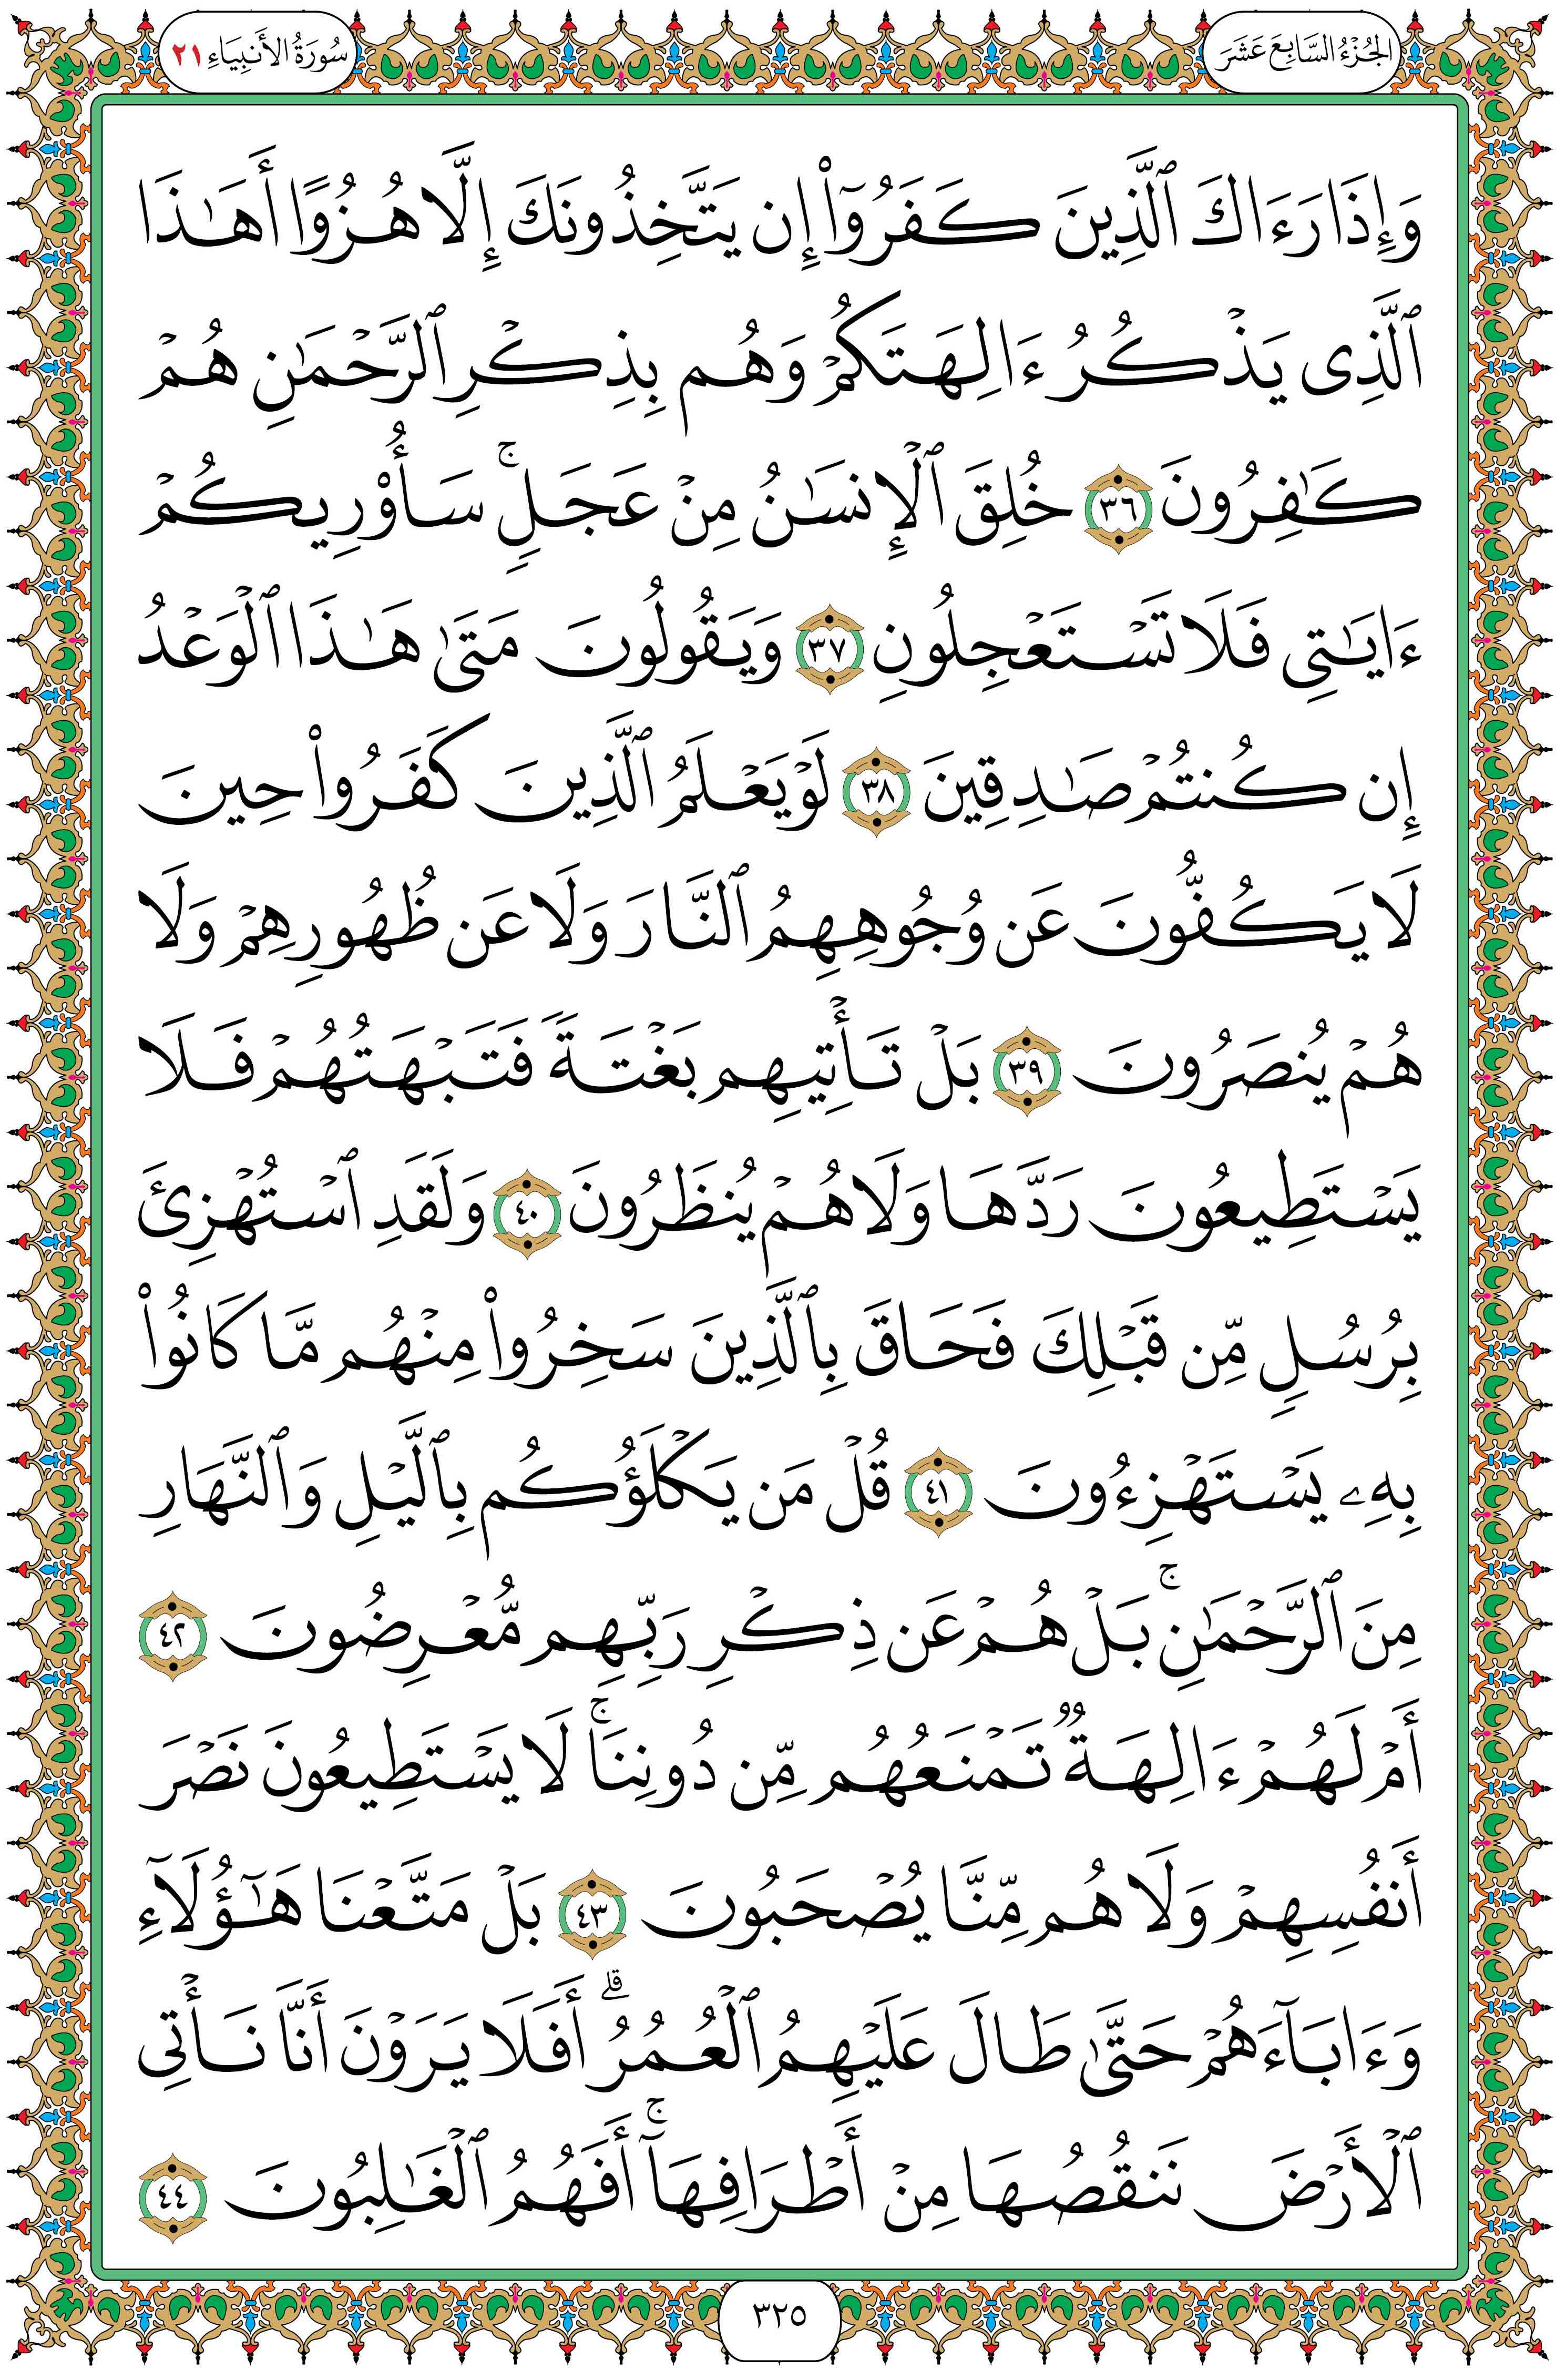 الجُزْءُ السَّابِعَ عَشَرَ
سُورَةُ الأَنبِيَاءِ ٢١
وَإِذَا رَءَاكَ ٱلَّذِينَ كَفَرُوٓا۟ إِن يَتَّخِذُونَكَ إِلَّا هُزُوًا أَهَـٰذَا
ٱلَّذِى يَذْكُرُ ءَالِهَتَكُمْ وَهُم بِذِكْرِ ٱلرَّحْمَـٰنِ هُمْ
كَـٰفِرُونَ ٣٦ خُلِقَ ٱلْإِنسَـٰنُ مِنْ عَجَلٍ ۚ سَأُو۟رِيكُمْ
ءَايَـٰتِى فَلَا تَسْتَعْجِلُونِ ٣٧ وَيَقُولُونَ مَتَىٰ هَـٰذَا ٱلْوَعْدُ
إِن كُنتُمْ صَـٰدِقِينَ ٣٨ لَوْ يَعْلَمُ ٱلَّذِينَ كَفَرُوا۟ حِينَ
لَا يَكُفُّونَ عَن وُجُوهِهِمُ ٱلنَّارَ وَلَا عَن ظُهُورِهِمْ وَلَا
هُمْ يُنصَرُونَ ٣٩ بَلْ تَأْتِيهِم بَغْتَةً فَتَبْهَتُهُمْ فَلَا
يَسْتَطِيعُونَ رَدَّهَا وَلَا هُمْ يُنظَرُونَ ٤٠ وَلَقَدِ ٱسْتُهْزِئَ
بِرُسُلٍ مِّن قَبْلِكَ فَحَاقَ بِٱلَّذِينَ سَخِرُوا۟ مِنْهُم مَّا كَانُوا۟
بِهِۦ يَسْتَهْزِءُونَ ٤١ قُلْ مَن يَكْلَؤُكُم بِٱلَّيْلِ وَٱلنَّهَارِ
مِنَ ٱلرَّحْمَـٰنِ ۚ بَلْ هُمْ عَن ذِكْرِ رَبِّهِم مُّعْرِضُونَ ٤٢
أَمْ لَهُمْ ءَالِهَةٌ تَمْنَعُهُم مِّن دُونِنَا ۚ لَا يَسْتَطِيعُونَ نَصْرَ
أَنفُسِهِمْ وَلَا هُم مِّنَّا يُصْحَبُونَ ٤٣ بَلْ مَتَّعْنَا هَـٰٓؤُلَآءِ
وَءَابَآءَهُمْ حَتَّىٰ طَالَ عَلَيْهِمُ ٱلْعُمُرُ ۗ أَفَلَا يَرَوْنَ أَنَّا نَأْتِى
ٱلْأَرْضَ نَنقُصُهَا مِنْ أَطْرَافِهَآ ۚ أَفَهُمُ ٱلْغَـٰلِبُونَ ٤٤
٣٢٥